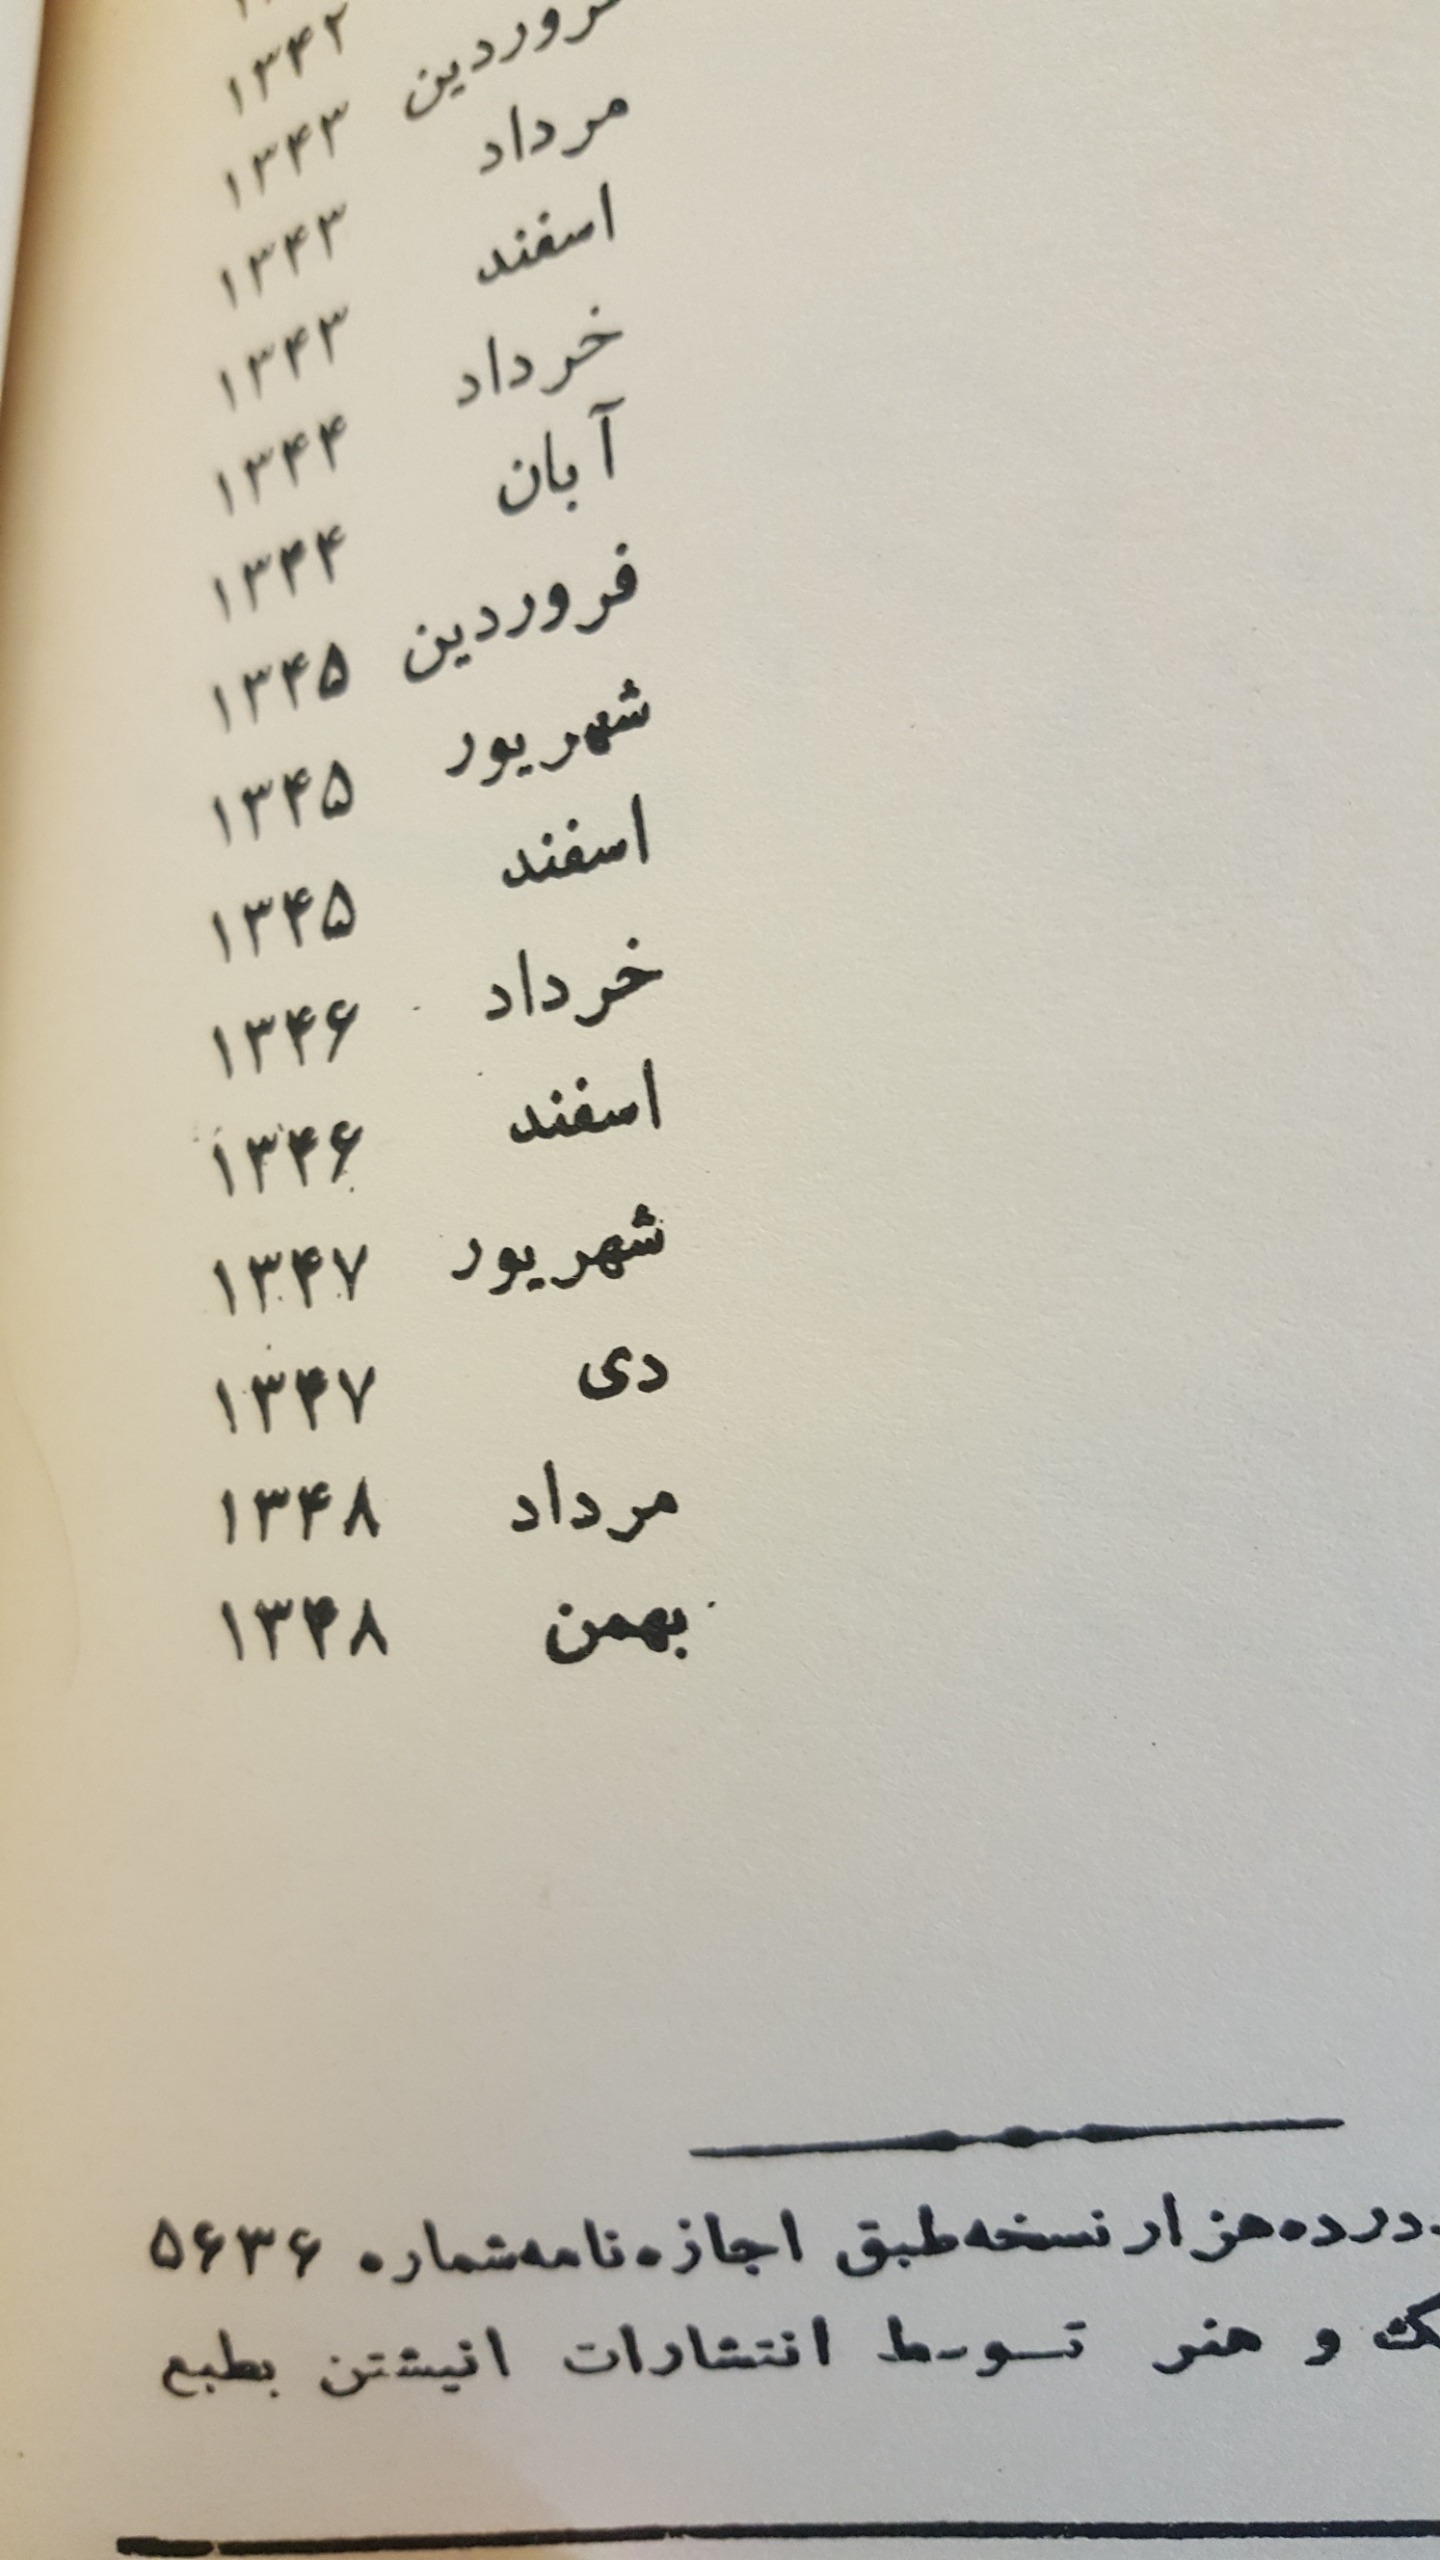 ۱۳۴۲
فروردین ۱۳۴۳
مرداد ۱۳۴۳
اسفند ۱۳۴۳
خرداد ۱۳۴۴
آبان ۱۳۴۴
فروردین ۱۳۴۵
شهریور ۱۳۴۵
اسفند ۱۳۴۵
خرداد ۱۳۴۶
اسفند ۱۳۴۶
شهریور ۱۳۴۷
دی ۱۳۴۷
مرداد ۱۳۴۸
بهمن ۱۳۴۸
در ده هزار نسخه طبق اجازه نامه شماره ۵۶۳۶
و هنر توسط انتشارات انیشتن بطبع